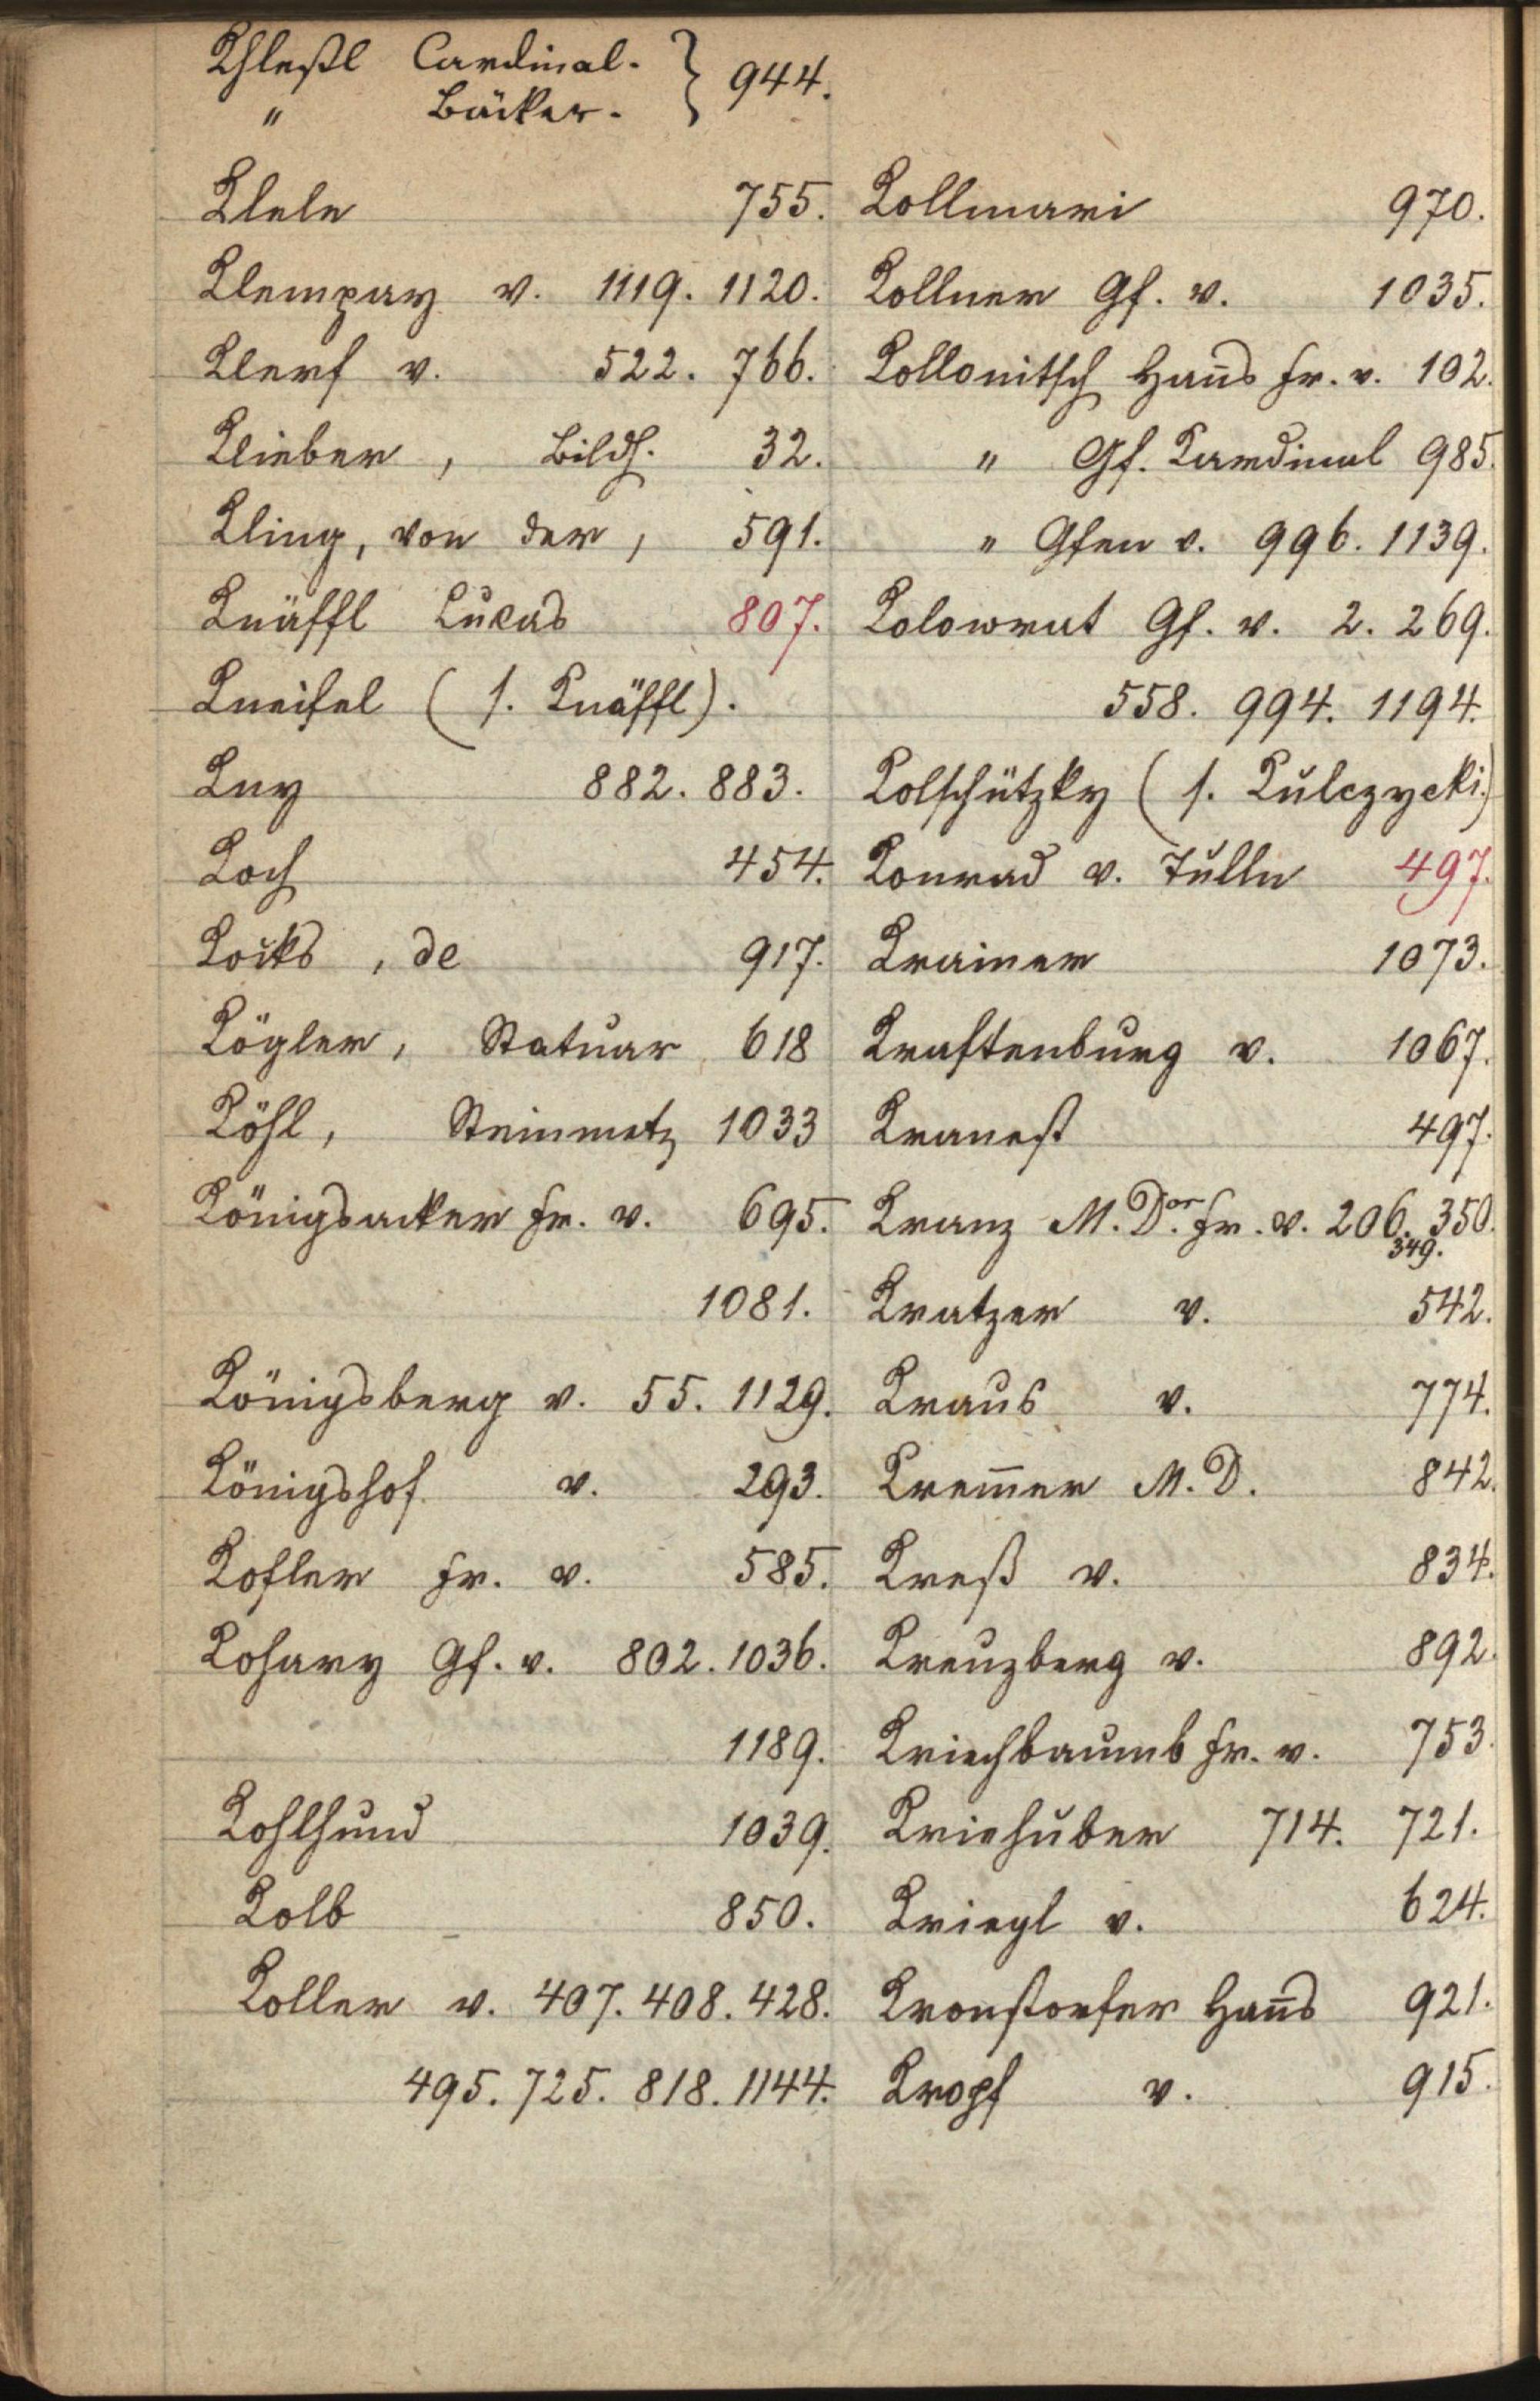 Khleßl Cardinal. } 944.
" Bäcker.
Klele 755.
Klempay v. 1119. 1120.
Klerf v. 522. 766.
Klieber, Bildh. 32.
Kling, von der, 591.
Knäffl Lukas 807.
Kneifel (s. Knäffl).
Kny 882. 883.
Koch 454.
Kocks, de 917.
Kögler, Statuar 618
Köhl, Steinmetz 1033
Königsacker Fr. v. 695.
1081.
Königsberg v. 55. 1129.
Königshof v. 293.
Kofler Fr. v. 585.
Kohary Gf. v. 802. 1036.
1189.
Kohlhund 1039.
Kolb 850.
Koller v. 407. 408. 428.
495. 725. 818. 1144.
Kollmari 970.
Kollner Gf. v. 1035.
Kollonitsch Hans̄ Fr. v. 102.
" Gf. Kardinal 985.
" Gfen v. 996. 1139.
Kolowrat Gf. v. 2. 269.
558. 994. 1194.
Kolschützky (s. Kulczycki.)
Konrad v. Tulln 497.
Krainer 1073.
Kraftenburg v. 1067.
Kranest 497.
Kranz M. Dor. Fr. v. 206. 350.
349.
Kratzer v. 542.
Kraus v. 774.
Krem̄er M. D. 842.
Kreß v. 834.
Kreuzberg v. 892.
Kriechbaumb Fr. v. 753.
Kriehuber 714. 721.
Kriegl v. 624.
Kronstorfer Han̄s 921.
Kropf v. 915.